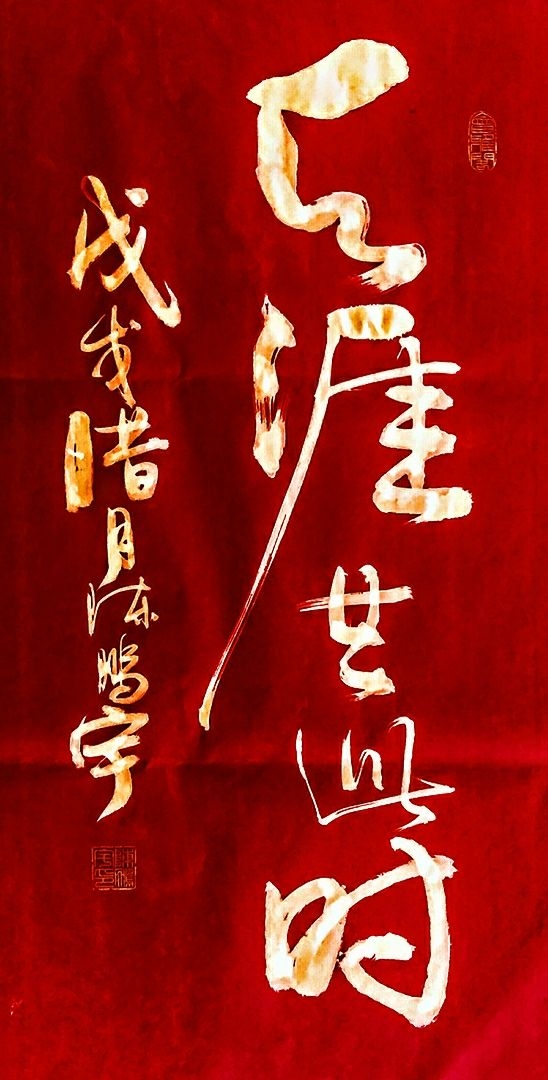 天涯共此时
戊戌腊月陈鹏宇